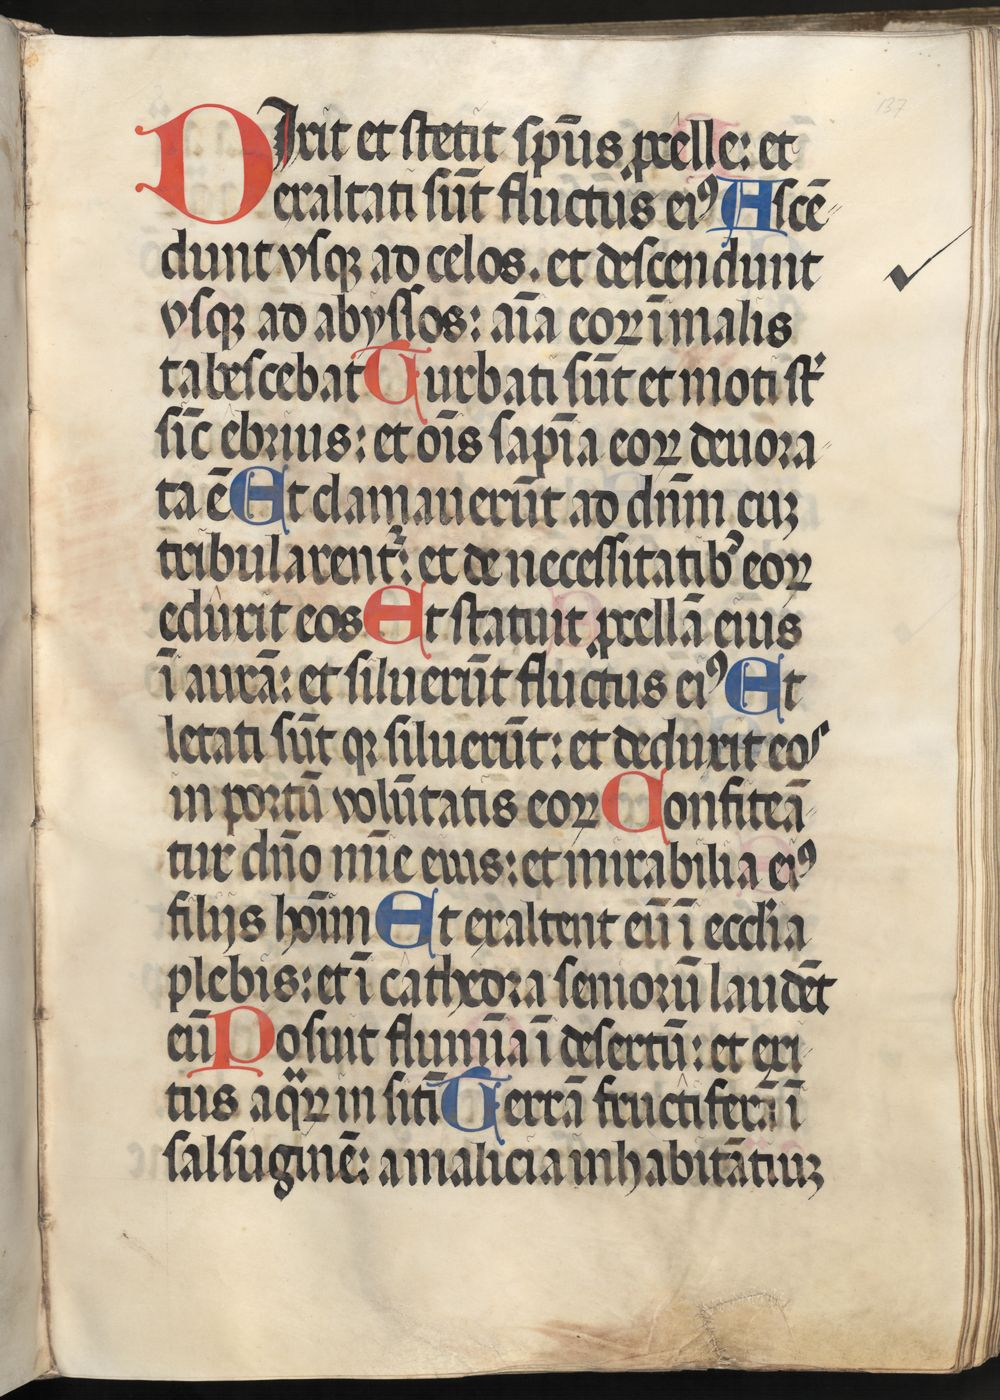 DIxit et stetit sp̄us ꝓcelle: et
exaltati sūt fluctus eiꝰ Ascē
dunt vsqꝫ ad celos. et descendunt
vsqꝫ ad abyssos: aīa eoꝝ ī malis
tabescebat Turbati sūt et moti st̄
sīc ebrius: et oīs sapīa eoꝝ deuora
ta ē Et clamauerūt ad dn̄m cuꝫ
tribularent᷑: et de necessitatibꝰ eoꝝ
eduxit eos Et statuit ꝓcellā eius
ī aurā: et siluerūt fluctus eiꝰ Et
letati sūt qꝫ siluerūt: et deduxit eos
in portū volūtatis eoꝝ Confiteā
tur dn̄o mīe eius: et mirabilia eiꝰ
filijs hoīm Et exaltent eū ī ecclīa
plebis: et ī cathedra seniorū laudēt
eū Posuit flumīa ī desertū: et exi
tus aqꝝ in sitī Terrā fructiferā ī
salsuginē: a malicia inhabitātiuꝫ
137